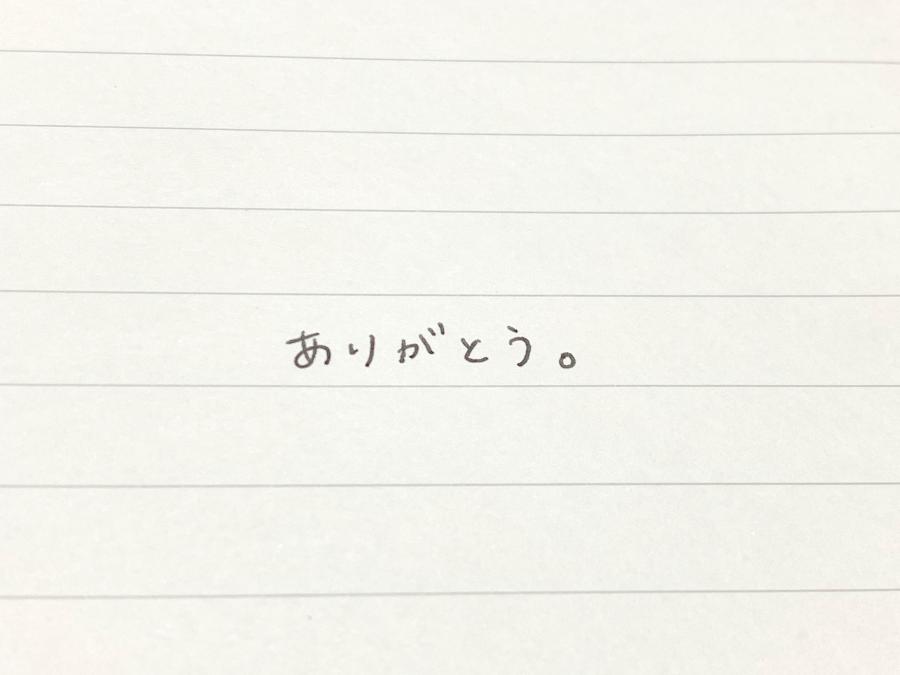 ありがとう。